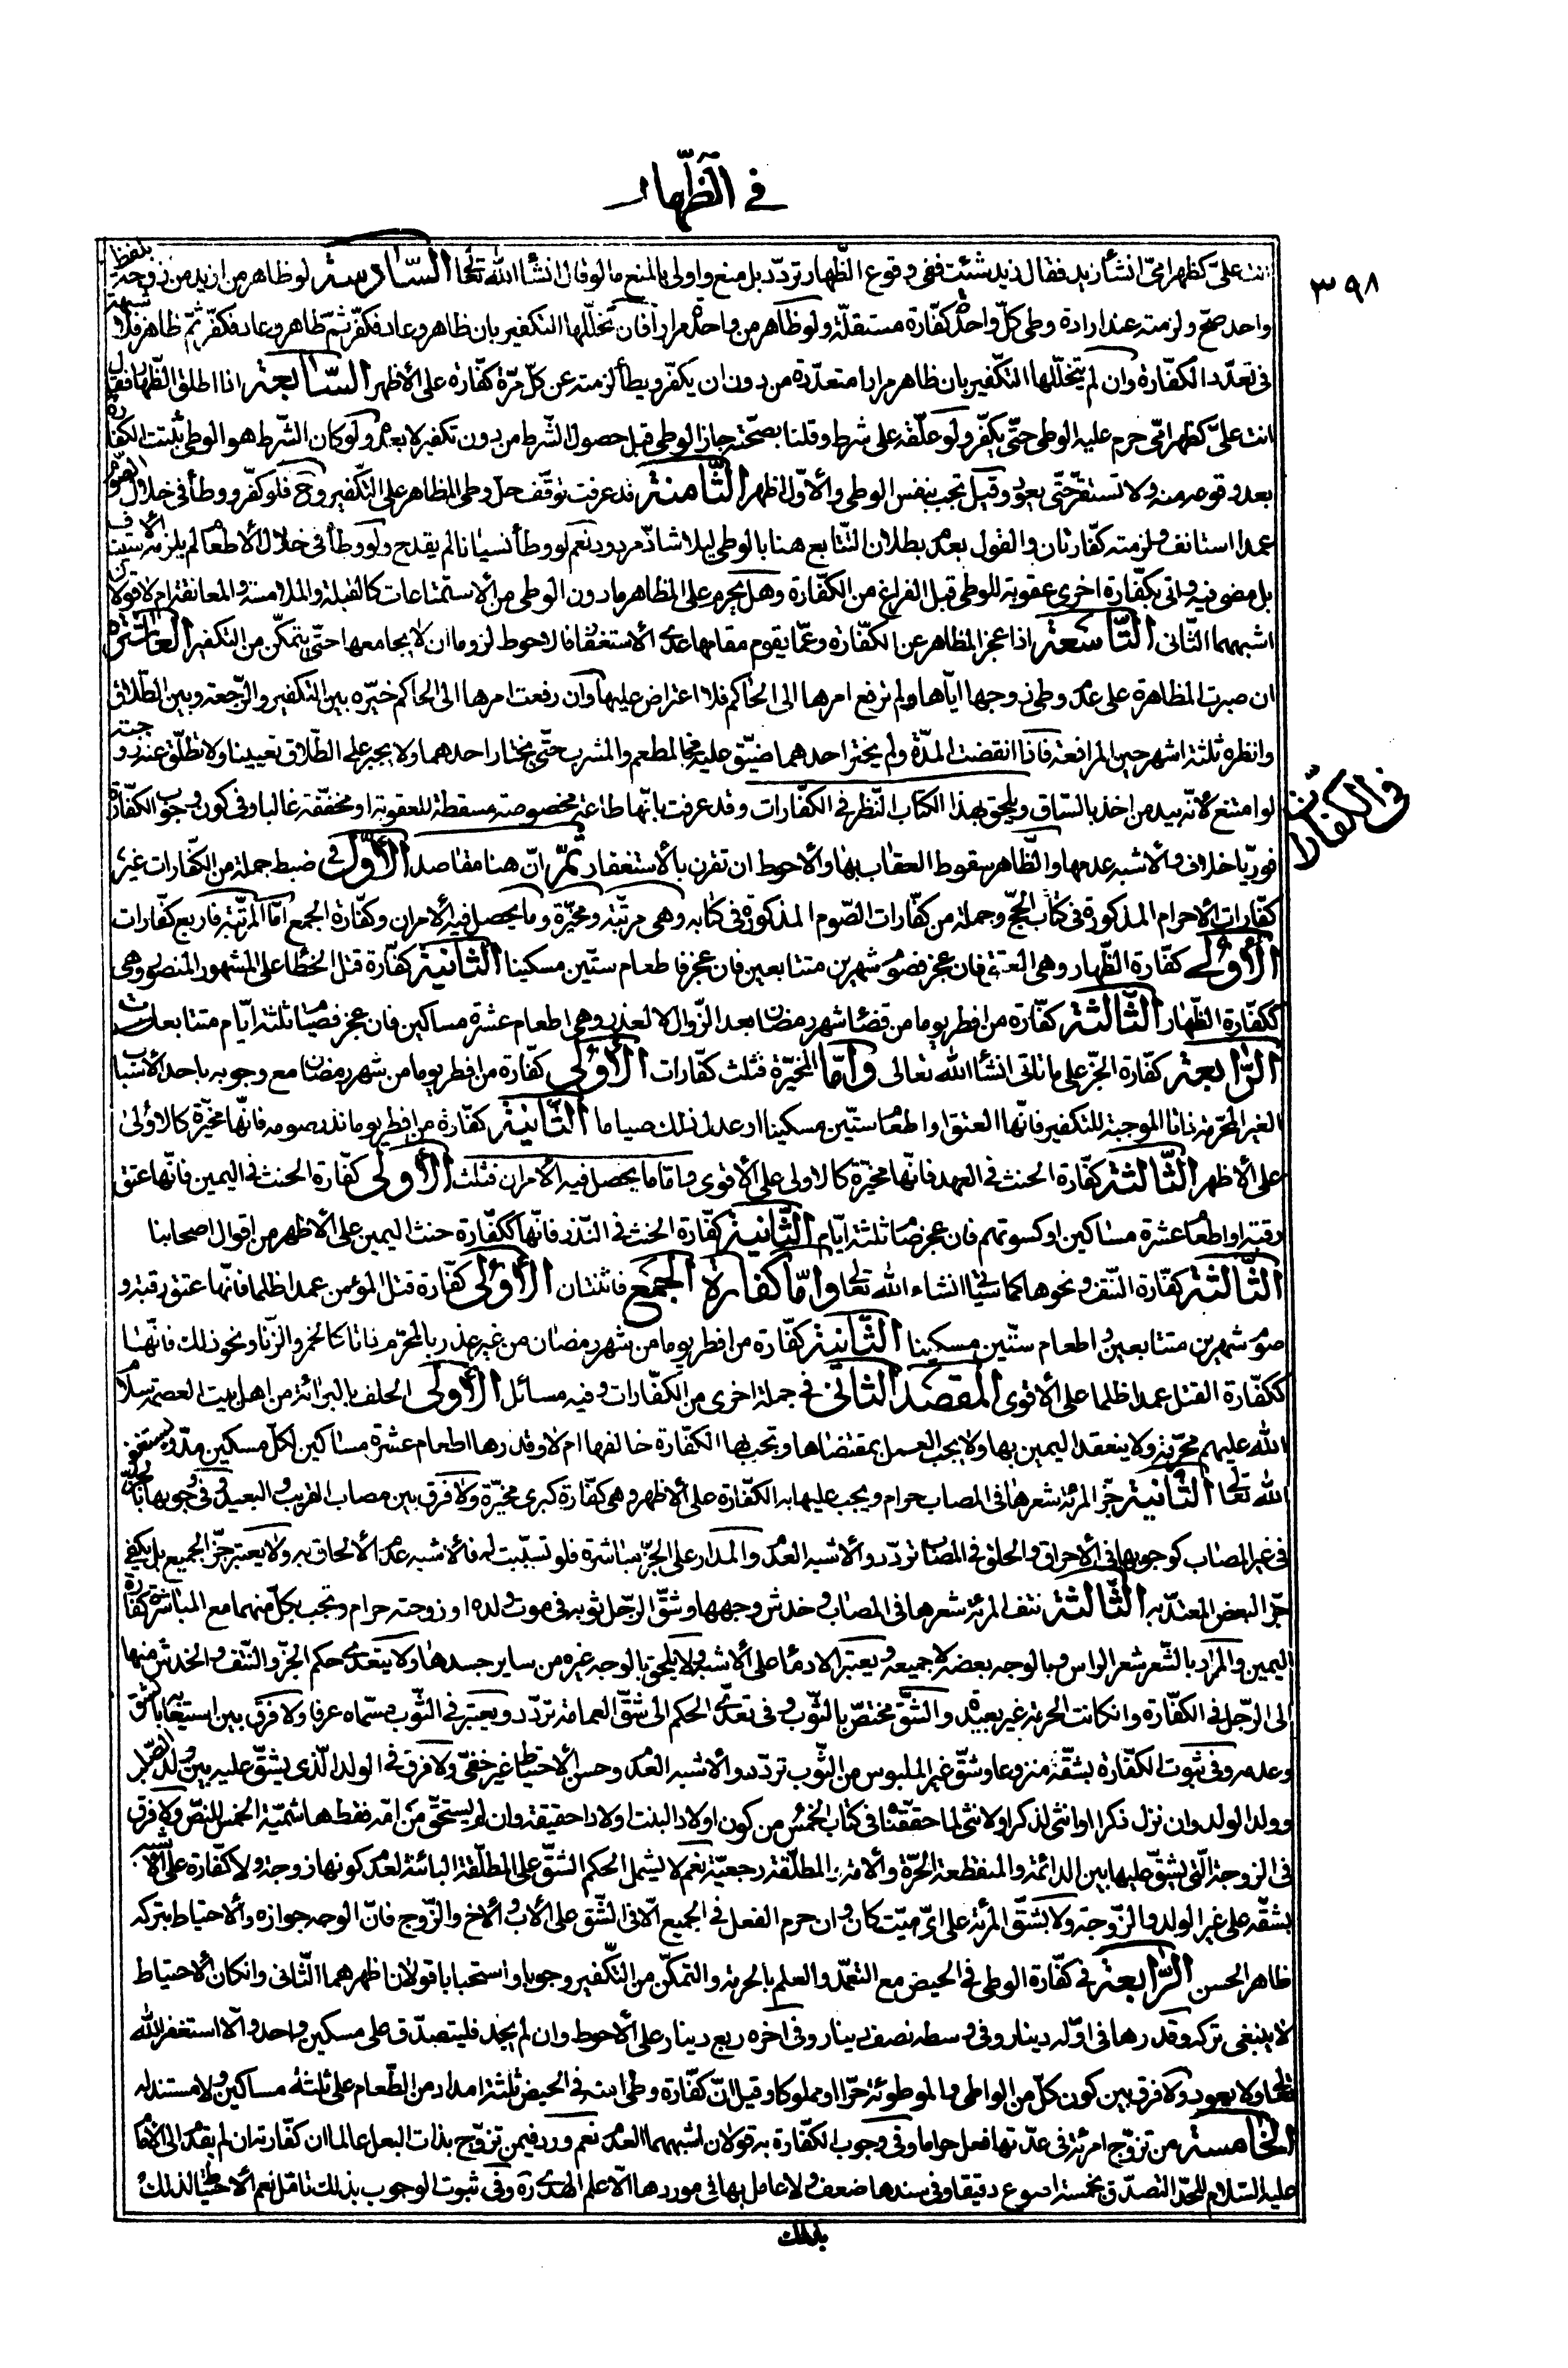 في الظّهار
٣٩٨
انت علىّ كظهر امّى انشأ زيد فقال زيد شئت ففى وقوع الظّهار تردّد بل منع واولى بالمنع ما لو قال انشأ الله تعالى السّادسة لو ظاهر من ازيد من زوجة بلفظ
واحد صحّ ولزمته عند ارادة وطى كلّ واحدة كفّارة مستقلّة ولو ظاهر من واحدة مرارا فان تخلّلها التكفير بان ظاهر وعاد فكفّر ثمّ ظاهر وعاد فكفّر ثمّ ظاهر فلا شبهة
فى تعدّد الكفّارة وان لم يتخلّلها التكفير بان ظاهر مرارا متعدّدة من دون ان يكفّر ويطأ لزمته عن كلّ مرّة كفّارة على الأظهر السّابعة اذا اطلق الظّهار فقال
انت علىّ كظهر امّى حرم عليه الوطى حتّى يكفّر ولو علّقه على شرط وقلنا بصحّته جاز الوطى قبل حصول الشّرط من دون تكفير لا بعده ولو كان الشّرط هو الوطى يثبت الكفّارة
بعد وقوعه منه ولا تستقرّ حتّى يعود وقيل تجب بنفس الوطى والأوّل اظهر الثّامنة قد عرفت توقّف حلّ وطى المظاهر على التّكفير وح فلو كفّر ووطأ فى خلال الصّوم
عمدا استانف ولزمته كفّارتان والقول بعدم بطلان التّتابع هنا بالوطى ليلا شاذّ مردود نعم لو وطأ نسيانا لم يقدح ولو وطأ فى خلال الأطعام لم يلزمه الأستيناف
بل مضى فيه واتى بكفّارة اخرى عقوبة للوطى قبل الفراغ من الكفّارة وهل يحرم على المظاهر ما دون الوطى من الأستمتاعات كالقبلة والملامسة والمعانقة ام لا قولان
اشبههما الثّانى التّاسعة اذا عجز المظاهر عن الكفّارة وعمّا يقوم مقامها عدى الأستغفار فالأحوط لزوما ان لا يجامعها حتّى يتمكّن من التكفير العاشرة
ان صبرت المظاهرة على عدم وطى زوجها ايّاها ولم ترفع امرها الى الحاكم فلا اعتراض عليها وان رفعت امرها الى الحاكم خيّره بين التكفير والرّجعة وبين الطّلاق
وانظره ثلثة اشهر حين المرافعة فاذا انقضت المدّة ولم يختر احدهما ضيّق عليه فى المطعم والمشرب حتّى يختار احدهما ولا يجبر على الطّلاق تعيينا ولا تطلّق عنه زوجته
لو امتنع لأنّه بيد من اخذ بالسّاق ويلحق بهذا الكتاب النّظر فى الكفّارات وقد عرفت بانّها طاعة مخصوصة مسقطة للعقوبة او مخفّفة غالبا وفى كون وجوب الكفّارة
في الكفّارات
فوريّا خلاف والأشبه عدمها والظّاهر سقوط العقاب بها والأحوط ان تقرن بالأستغفار ثمّ انّ هنا مقاصد الأوّل فى ضبط جملة من الكفّارات غير
كفّارات الأحرام المذكورة فى كتاب الحجّ وجملة من كفّارات الصّوم المذكورة فى كتابه وهى مرتّبة ومخيّرة وما يحصل فيه الأمران وكفّارة الجمع امّا المرتّبة فاربع كفّارات
الأولى كفّارة الظّهار وهى العتق فان عجز فصوم شهرين متتابعين فان عجز فاطعام ستّين مسكينا الثّانية كفّارة قتل الخطأ على المشهور المنصور وهى
ككفّارة الظّهار الثّالثة كفّارة من افطر يوما من قضاء شهر رمضان بعد الزّوال لا لعذر وهى اطعام عشرة مساكين فان عجز فصيام ثلثة ايّام متتابعات
الرّابعة كفّارة الجزّ على ما تاتى انشأ الله تعالى وامّا المخيّرة فثلث كفّارات الأولى كفّارة من افطر يوما من شهر رمضان مع وجوبه باحد الأسباب
الغير المحرّمة ذاتا الموجبة للتكفير فانّها العتق او اطعام ستّين مسكينا او عدل ذلك صياما الثّانية كفّارة من افطر يوما نذر صومه فانّها مخيّرة كالأولى
على الأظهر الثّالثة كفّارة الحنث فى العهد فانّها مخيّرة كالاولى على الأقوى وامّا ما يحصل فيه الأمران فثلث الأولى كفّارة الحنث فى اليمين فانّها عتق
رقبة او اطعام عشرة مساكين او كسوتهم فان عجز صام ثلثة ايّام الثّانية كفّارة الحنث فى النّذر فانّها ككفّارة حنث اليمين على الأظهر من اقوال اصحابنا
الثّالثة كفّارة النّتف ونحوها كما سياتى انشاء الله تعالى وامّا كفارة الجمع فاثنتان الأولى كفّارة قتل المؤمن عمدا ظلما فانّها عتق رقبة و
صوم شهرين متتابعين واطعام ستّين مسكينا الثّانية كفّارة من افطر يوما من شهر رمضان من غير عذر بالمحرّم ذاتا كالخمر والزّنا ونحو ذلك فانّها
ككفّارة القتل عمدا ظلما على الأقوى المقصد الثّانى فى جملة اخرى من الكفّارات وفيه مسائل الأولى الحلف بالبرائة من اهل بيت العصمة سلام
الله عليهم محرّمة ولا ينعقد اليمين بها ولا يجب العمل بمقتضاها وتجب بها الكفّارة خالفها ام لا وقدرها اطعام عشرة مساكين لكلّ مسكين مدّ ويستغفر
الله تعالى الثّانية جزّ المرئة شعرها فى المصاب حرام ويجب عليها به الكفّارة على الأظهر وهى كفّارة كبرى مخيّرة ولا فرق بين مصاب القريب والبعيد وفى وجوبها بالجزّ
فى غير المصاب كوجوبها فى الأحراق والحلق فى المصاب تردّد والأشبه العدم والمدار على الجزّ مباشرة فلو تسبّبت له فالأشبه عدم الألحاق به ولا يعتبر جزّ الجميع بل يكفى
جزّ البعض المعتدّ به الثّالثة نتف المرئة شعرها فى المصاب وخدش وجهها وشقّ الرّجل ثوبه فى موت ولده او زوجته حرام وتجب بكلّ منهما مع المباشرة كفّارة
اليمين والمراد بالشّعر شعر الراس وبالوجه بعضه لا جميعه ويعتبر الادماء على الأشبه ولا يلحق بالوجه غيره من ساير جسدها ولا يتعدّى حكم الجزّ والنّتف والخدش منها
الى الرّجل فى الكفّارة وانكانت الحرمة غير بعيدة والشّقّ مختصّ بالثّوب وفى تعدّى الحكم الى شقّ العمامة تردّد ويعتبر فى الثّوب مسّماه عرفا ولا فرق بين استيعابه بالشّق
وعدمه وفى ثبوت الكفّارة بشقّه منزوعا وشقّ غير الملبوس من الثّوب تردّد والأشبه العدم وحسن الأحتياط غير خفىّ ولا فرق فى الولد الّذى يشقّ عليه بين ولد الصّلب
وولد الولد وان نزل ذكرا او انثى لذكر او لأنثى لما حقّقناه فى كتاب الخمس من كون اولاد البنت اولادا حقيقة وان لم يستحقّ من امّه فقط هاشميّة الخمس للنصّ ولا فرق
فى الزوجة الّتى يشقّ عليها بين الدائمة والمنقطعة الحرّة والأمة المطلّقة رجعيّة نعم لا يشمل الحكم الشقّ على المطلّقة البائنة لعدم كونها زوجة ولا كفّارة على الأشبه
بشقّه على غير الولد والزّوجة ولا بشقّ المرئة على اىّ ميّت كان وان حرم الفعل فى الجميع الّا فى الشّق على الأب والأخ والزّوج فانّ الوجه جوازه والأحتياط بتركه
ظاهر الحسن الرّابعة فى كفّارة الوطى فى الحيض مع التعمّد والعلم بالحرمة والتمكّن من التّكفير وجوبا او استحبابا قولان اظهرهما الثّانى وانكان الأحتياط
لا ينبغى تركه وقدرها فى اوّله دينار وفى وسطه نصف دينار وفى اخره ربع دينار على الأحوط وان لم يجد فليتصدّق على مسكين واحد والّا استغفر الله
تعالى ولا يعود ولا فرق بين كون كلّ من الواطى والموطوئة حرّا او مملوكا وقيل انّ كفّارة وطى امته فى الحيض ثلثة امداد من الطّعام على ثلثة مساكين ولا مستند له
الخامسة من تزوّج امرئة فى عدّتها فعل حراما وفى وجوب الكفّارة به قولان اشبههما العدم نعم ورد فيمن تزوّج بذات البعل عالما ان كفّارته ان لم يقدّم الى الأمام
عليه السّلام للحدّ التصدّق بخمسة اصوع دقيقا وفى سندها ضعف ولا عامل بها فى موردها الّا علم الهدى ره وفى ثبوت الوجوب بذلك تامّل نعم الأحتياط لذلك